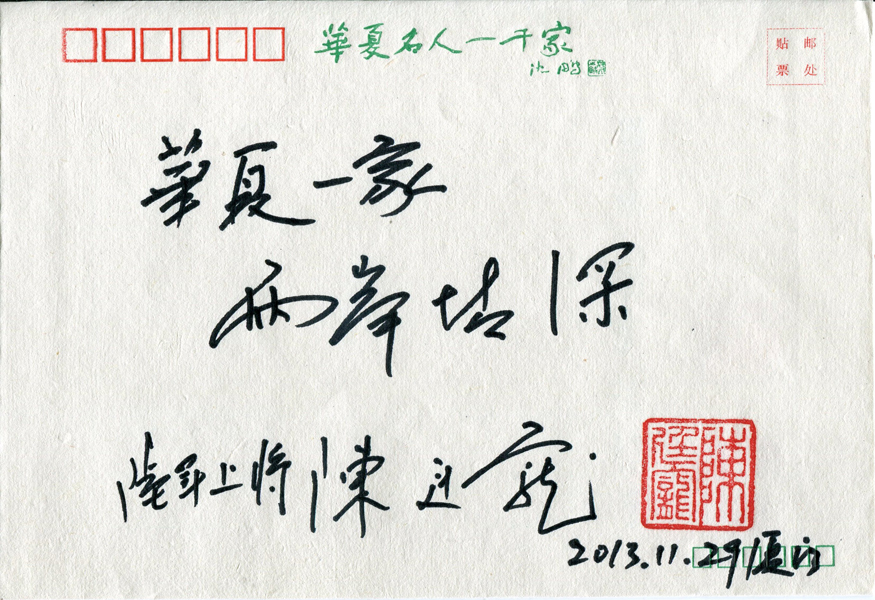 華夏名人一千家
沈鹏
贴 邮
票 处
華夏一家
兩岸情深
陸軍上將 陳廷寵
陳廷寵
2013.11.29厦门